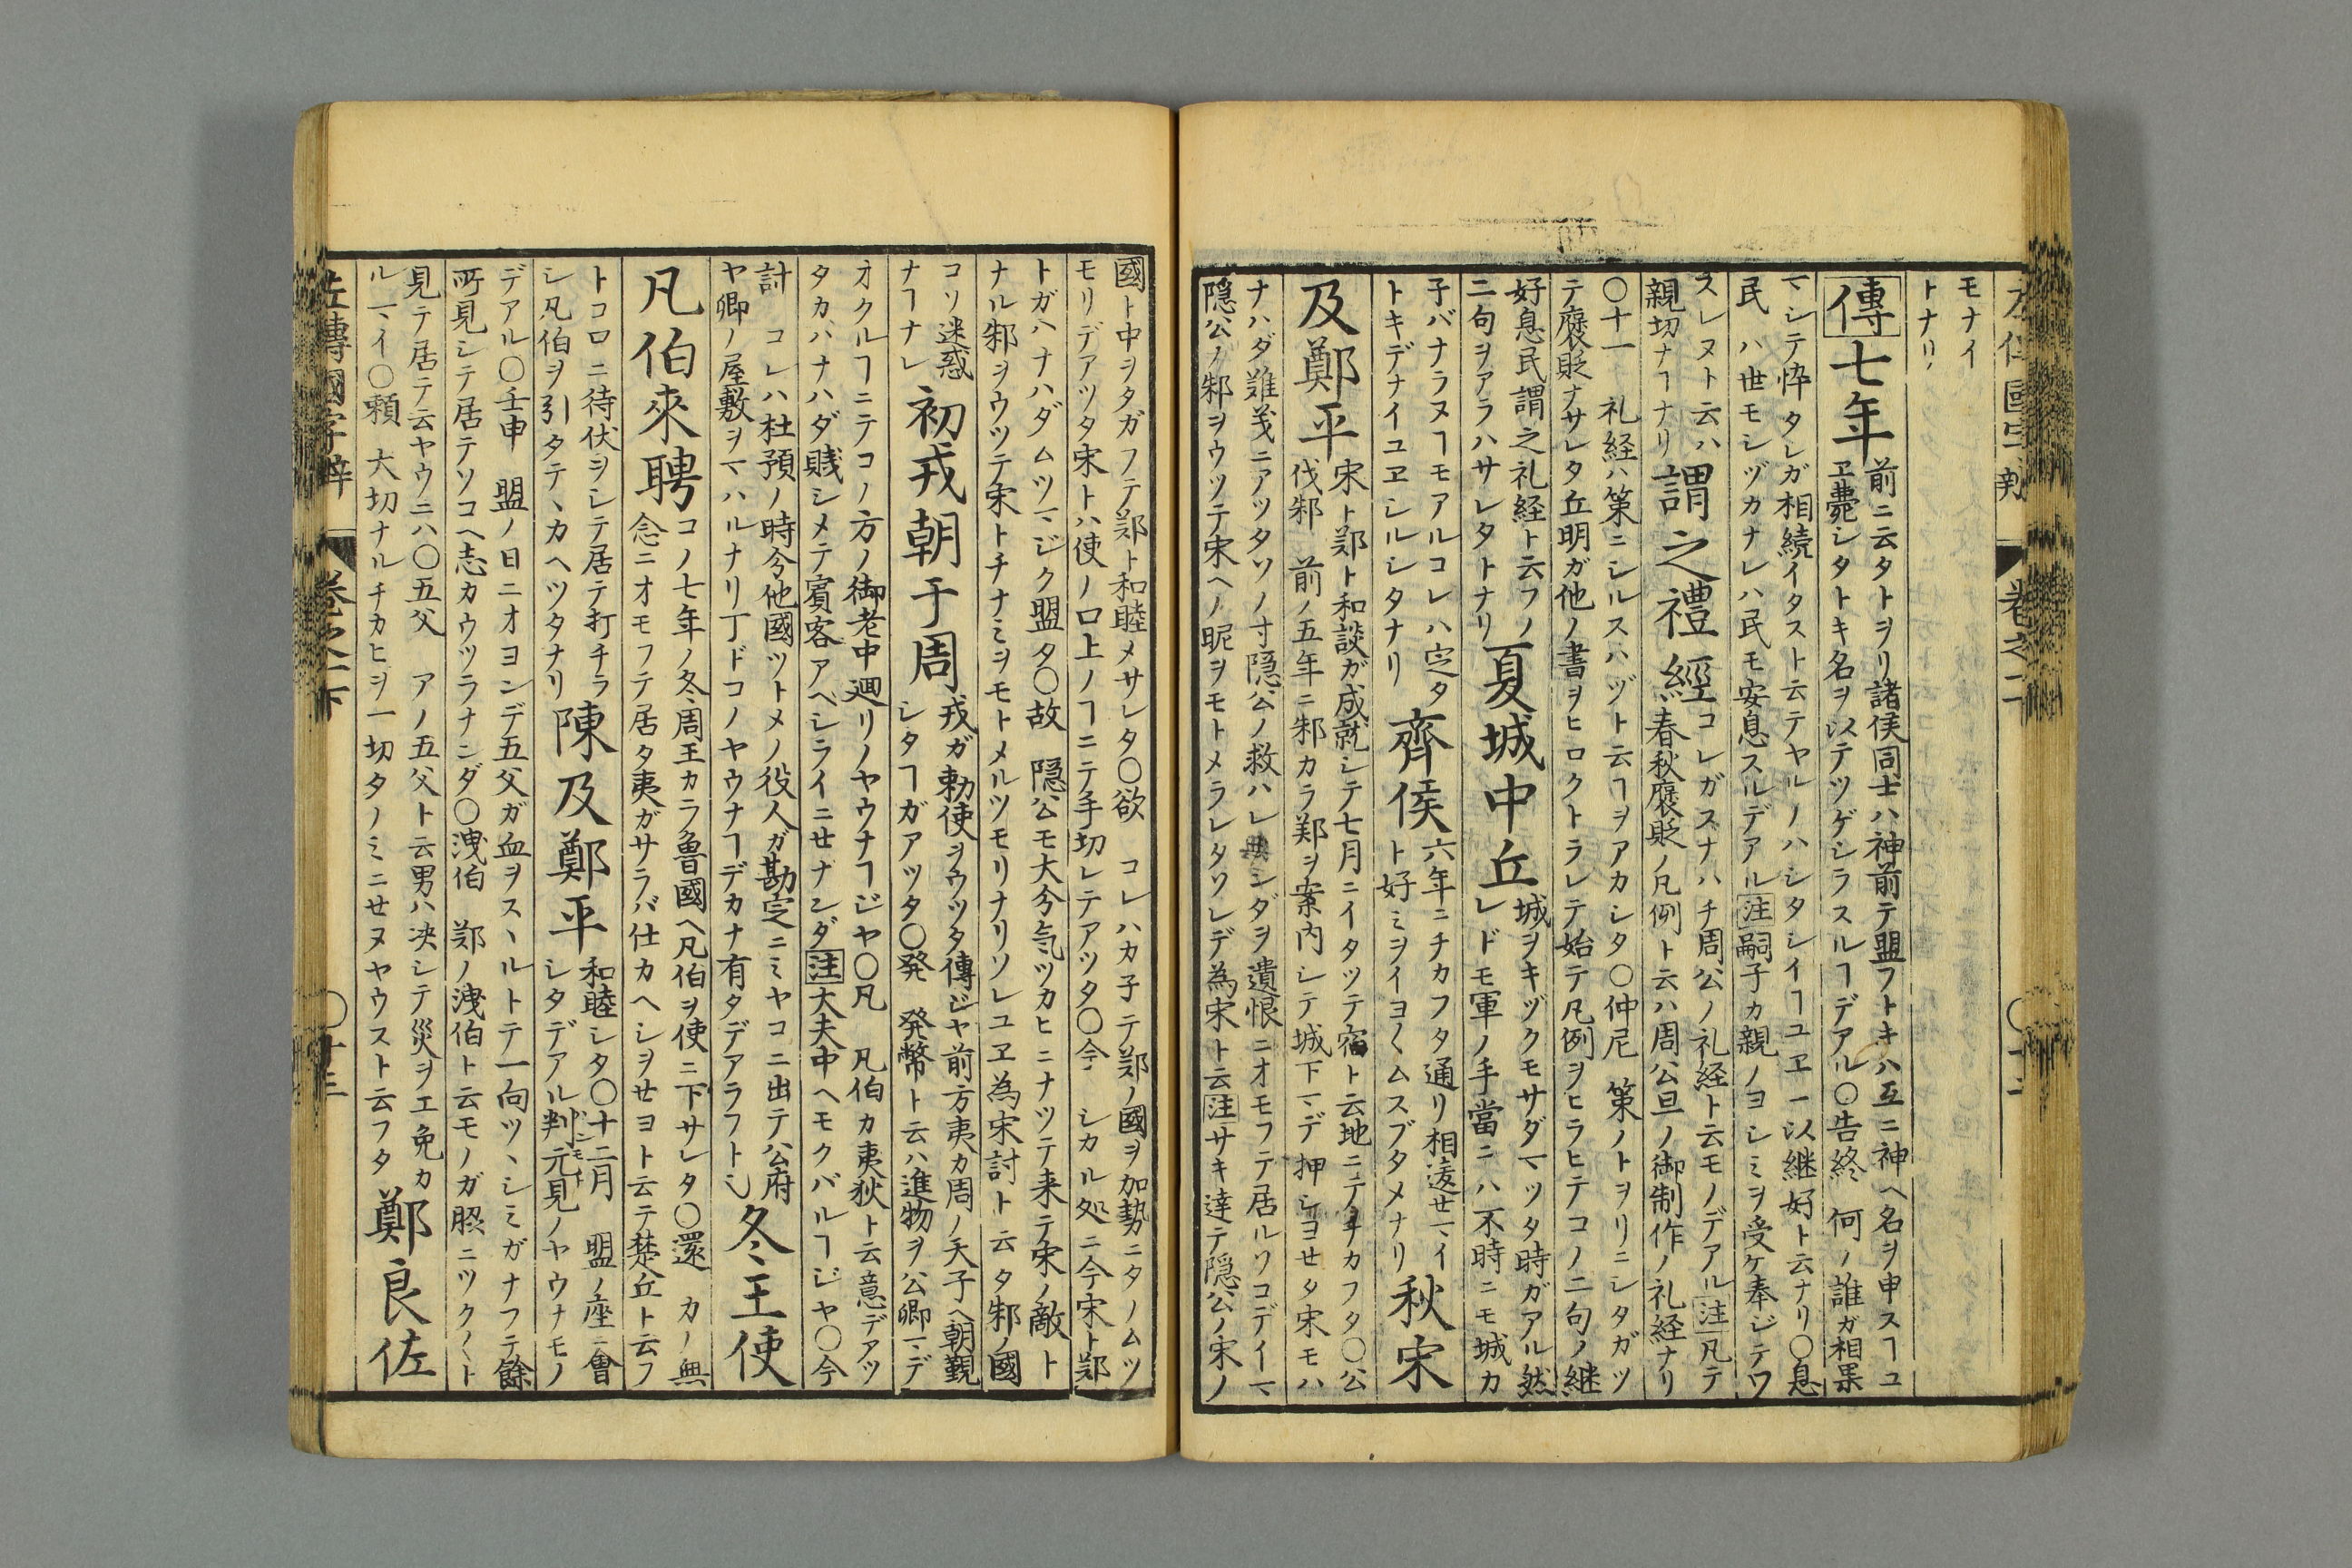 左傳國字辨 巻之一下
モナイ
トナリ
傳七年
前ニ云タトヲリ諸侯同士ハ神前テ盟フトキハ互ニ神ヘ名ヲ申スヿユ
ヱ薨シタトキ名ヲ以テツゲシラスルヿデアル〇告終 何ノ誰ガ相果
マシテ悴タレガ相続イタスト云テヤルノハシタシイヿユヱ一以継好ト云ナリ〇息
民 ハ世モシヅカナレハ民モ安息スルデアル注嗣子カ親ノヨシミヲ受ケ奉ジテワ
スレヌト云ハ
親切ナヿナリ
謂之禮經
コレガスナハチ周公ノ礼経ト云モノデアル注凡テ
春秋褒貶ノ凡例ト云ハ周公旦ノ御制作ノ礼経ナリ
〇十一 礼経ハ策ニシルスハヅト云ヿヲアカシタ〇仲尼 策ノトヲリニシタガツ
テ褒貶ナサレタ丘明ガ他ノ書ヲヒロクトラレテ始テ凡例ヲヒラヒテコノ二句ノ継
好息民謂之礼経ト云フノ
二句ヲアラハサレタトナリ
夏城中丘
城ヲキヅクモサダマツタ時ガアル然
レドモ軍ノ手當ニハ不時ニモ城カ
子バナラヌヿモアルコレハ定タ
トキデナイユヱシルシタナリ
齊侯
六年ニチカフタ通リ相違せマイ
ト好ミヲイヨ〱ムスブタメナリ
秋宋
及鄭平
宋ト鄭ト和談ガ成就シテ七月ニイタツテ宿ト云地ニテチカフタ〇公
伐邾 前ノ五年ニ邾カラ鄭ヲ案内シテ城下マデ押シヨせタ宋モハ
ナハダ難義ニアツタソノ寸隠公ノ救ハレナンダヲ遺恨ニオモフテ居ルソコデイマ
隠公ノ邾ヲウツテ宋ヘノ昵ヲモトメラレタソレデ為宋ト云注サキ達テ隠公ノ宋ノ
國ト中ヲタガフテ鄭ト和睦メサレタ〇欲 コレハカ子テ鄭ノ國ヲ加勢ニタノムツ
モリデアツタ宋トハ使ノ口上ノヿニテ手切レテアツタ〇今 シカル処ニ今宋ト鄭
トガハナハダムツマジク盟タ〇故 隠公モ大今気ツカヒニナツテ来テ宋ノ敵ト
ナル邾ヲウツテ宋トチナミヲモトメルツモリナリソレユヱ為宋討ト云タ邾ノ國
コソ迷惑
ナヿナレ
初戎朝于周
戎ガ勅使ヲウツタ傳ジヤ前方夷カ周ノ天子ヘ朝覲
シタヿガアツタ〇発 発幣ト云ハ進物ヲ公卿マデ
オクルヿニテコノ方ノ御老中廻リノヤウナヿジヤ〇凡 凡伯カ夷狄ト云意デアツ
タカハナハダ賎シメテ賓客アヘシライニせナンダ注大夫中ヘモクバルヿジヤ〇今
計 コレハ杜預ノ時今他國ツトメノ役人ガ勘定ニミヤコニ出テ公府
ヤ卿ノ屋敷ヲマハルナリ丁ドコノヤウナヿデカナ有タデアラフト也
冬王使
凡伯來聘
コノ七年ノ冬周王カラ魯國ヘ凡伯ヲ使ニ下サレタ〇還 カノ無
念ニオモフテ居タ夷ガサラバ仕カヘシヲせヨト云テ楚丘ト云フ
トコロニ待伏ヲシテ居テ打チラ
シ凡伯ヲ引タテヽカヘツタナリ
陳及鄭平
和睦シタ〇十二月 盟ノ座ニ會
シタデアル判元見ノヤウナモノ
デアル〇壬申 盟ノ日ニオヨンデ五父ガ血ヲスヽルトテ一向ツヽシミガナフテ餘
所見シテ居テソコヘ志カウツラナンダ〇洩伯 鄭ノ洩伯ト云モノガ照ニツク〱ト
見テ居テ云ヤウニハ〇五父 アノ五父ト云男ハ决シテ災ヲエ免カ
ルマイ〇頼 大切ナルチカヒヲ一切タノミニせヌヤウスト云フタ
鄭良佐
左傳國字辨 巻之一下 〇十三